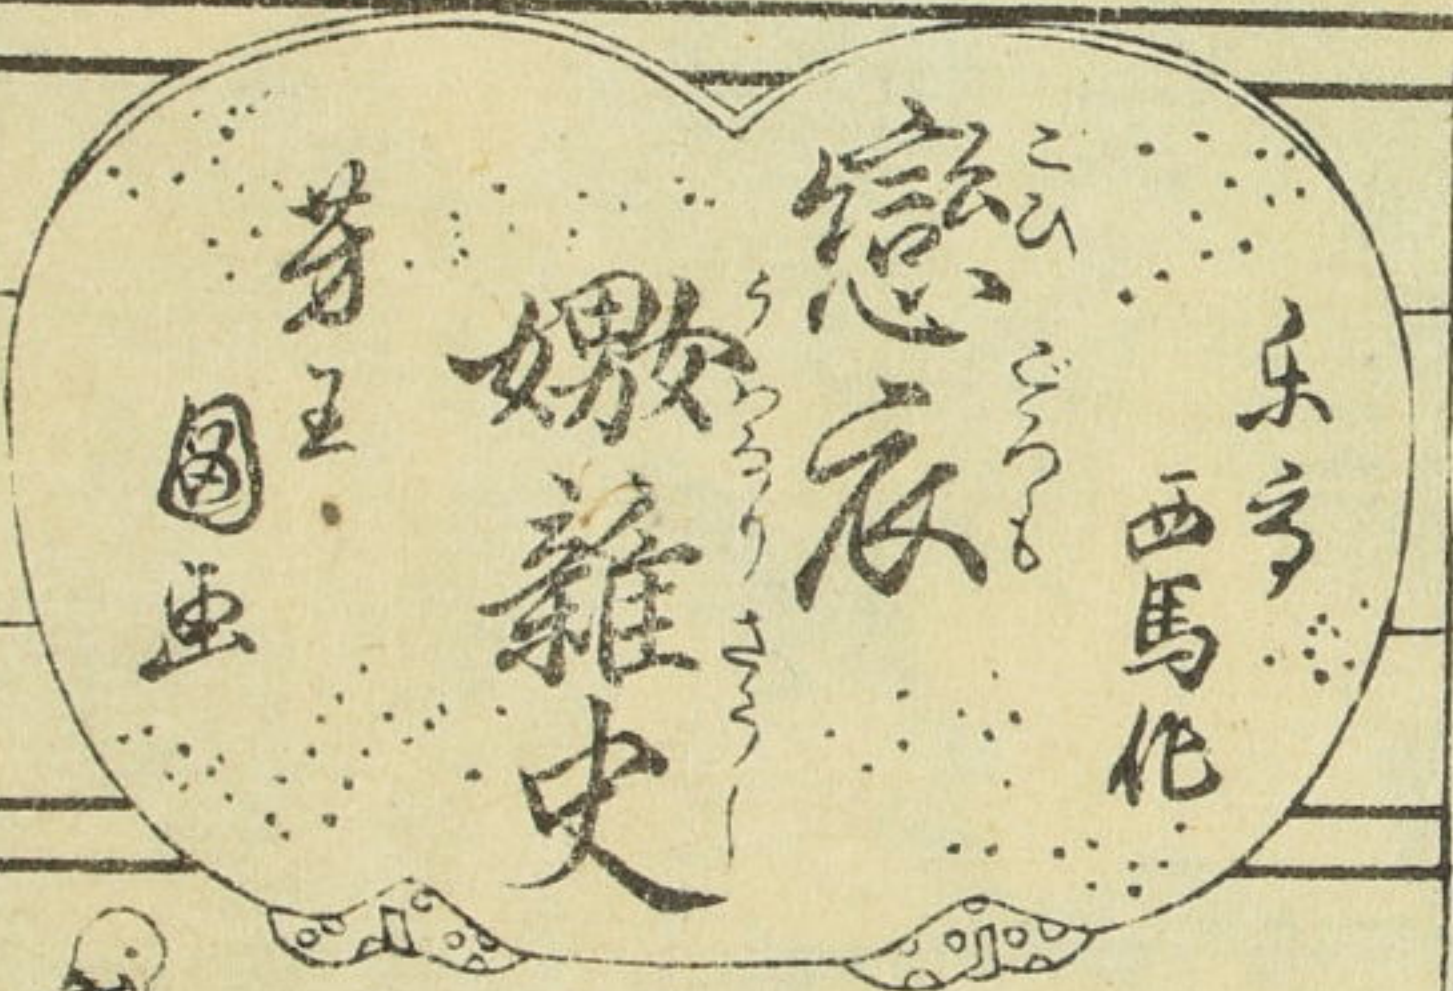 楽亭
西馬作
戀衣
こひごろも
嫐雜史
うはなりさうし
芳玉
圖画